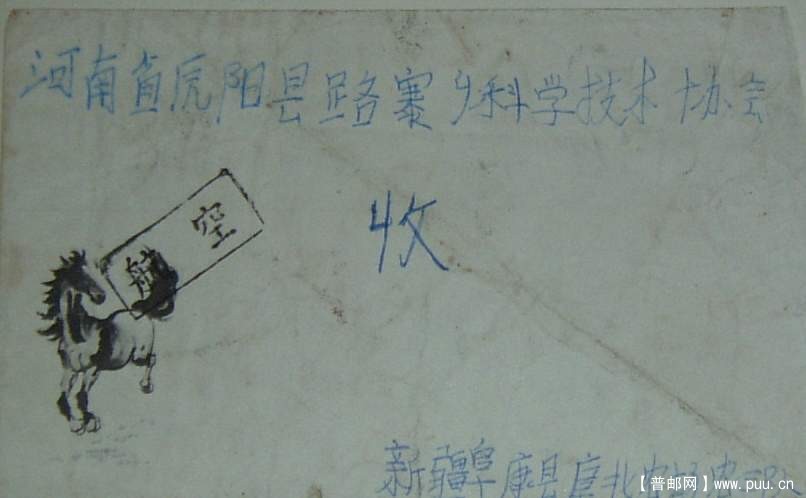 河南省原阳县路寨乡科学技术协会
收
航空
新疆阜康县阜北农场
【普邮网】www.puu.cn